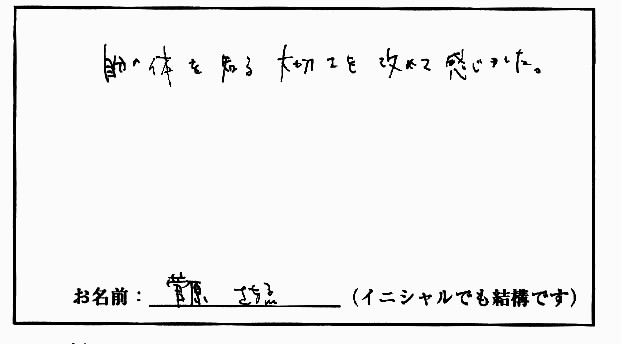 自分の体を知る大切さを改めて感じました。
お名前：菅原 （イニシャルでも結構です）